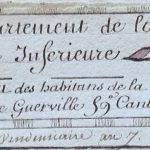 artement de la
Inferieure
des habitans de la
e Guerville
Vindémiaire an 7.